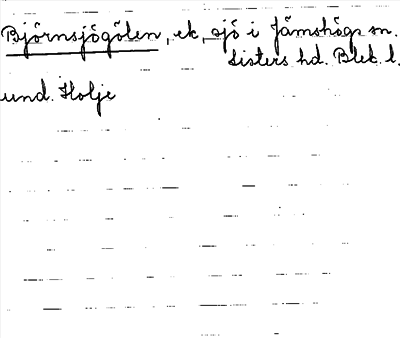 Björnsjögölen, ek, sjö i Jämshögs sn.
Listers hd. Blek. l.
und. Holje